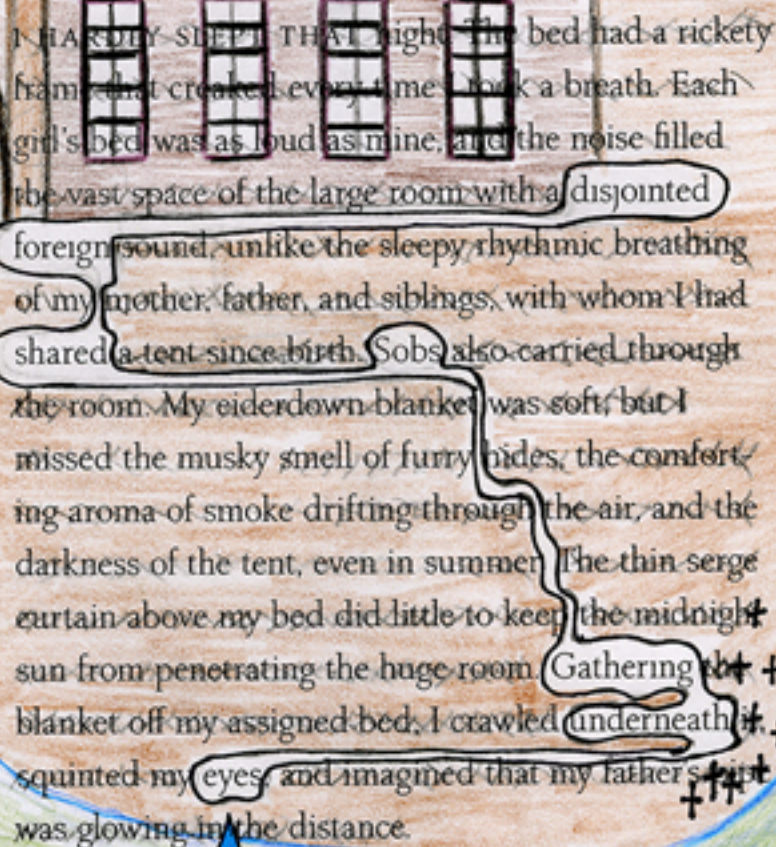 I HARDLY SLEPT THAT night. The bed had a rickety
frame that creaked every time I took a breath. Each
girl's bed was as loud as mine, and the noise filled
the vast space of the large room with a disjointed
foreign sound, unlike the sleepy rhythmic breathing
of my mother, father, and siblings, with whom I had
shared a tent since birth. Sobs also carried through
the room. My eiderdown blanket was soft, but I
missed the musky smell of furry hides, the comfort-
ing aroma of smoke drifting through the air, and the
darkness of the tent, even in summer. The thin serge
curtain above my bed did little to keep the midnight
sun from penetrating the huge room. Gathering the
blanket off my assigned bed, I crawled underneath it,
squinted my eyes, and imagined that my father's pipe
was glowing in the distance.